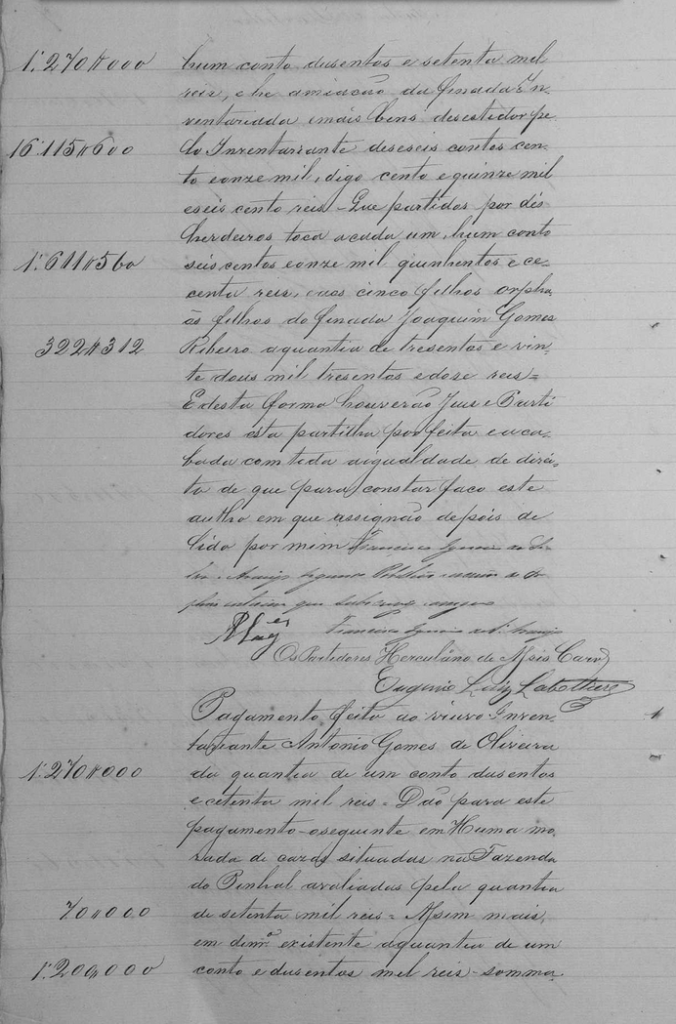 1:270$000 hum conto dusentos e setenta mil
reis, e he amiacão da finada In
ventariada e mais bens desestidos pe
16:115$600 lo Inventariante deseseis contos cen
to e onze mil, digo cento e quinze mil
e seis cento reis - Que partidos por dés
herdeiros toca a cada um, hum conto
1:611$560 seis centos e onze mil quinhentos e ce
centa reis, e aos cinco filhos orpha
os filhos do finado Joaquim Gomes
322$312 Ribeiro a quantia de tresentos e vin
te dous mil tresentos e dose reis =
E desta forma houverão Juis e Parti
dores esta partilha por feita e aca
bada com toda a igualdade de direi
to de que para constar faco este
autho em que assignão depois de
lido por mim Francisco
Os Partidores Herculano de Assis Carv
Eugenio Luiz
Pagamento feito ao viuvo Inven
tariante Antonio Gomes de Oliveira
1:270$000 da quantia de um conto dusentos
e cetenta mil reis. Dão para este
pagamento o seguinte em Huma mo
rada de cazas situadas na Fazenda
do Pinhal avaliadas pela quantia
70$000 de setenta mil reis = Assim mais,
em dinrº existente a quantia de um
1:200$000 conto e dusentos mil reis - somma